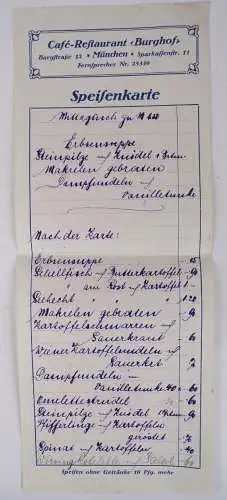 Café-Restaurant ‹Burghof›
Burgstraße 12 • München • Sparkassenstr. 11
Fernsprecher Nr. 25339
Speisenkarte
Mittagstisch zu M
Erbsensuppe
Steinpilze mit Knödel
Makrelen gebraten
Dampfnudeln mit
Vanilletunke
Nach der Karte:
Erbsensuppe
Schellfisch mit Butterkartoffel
" am Rost mit Kartoffel
Gehackt " "
Makrelen gebraten
Kartoffelschmarren mit
Sauerkraut - 60
Wiener Kartoffelnudeln mit
Sauerkraut
Dampfnudeln mit
Vanilletunke 40 - 60
Omelettestrudel
Steinpilze mit Knödel
Pfifferlinge mit Kartoffeln
geröstet
Spinat mit Kartoffeln
Speisen ohne Getränke 10 Pfg. mehr